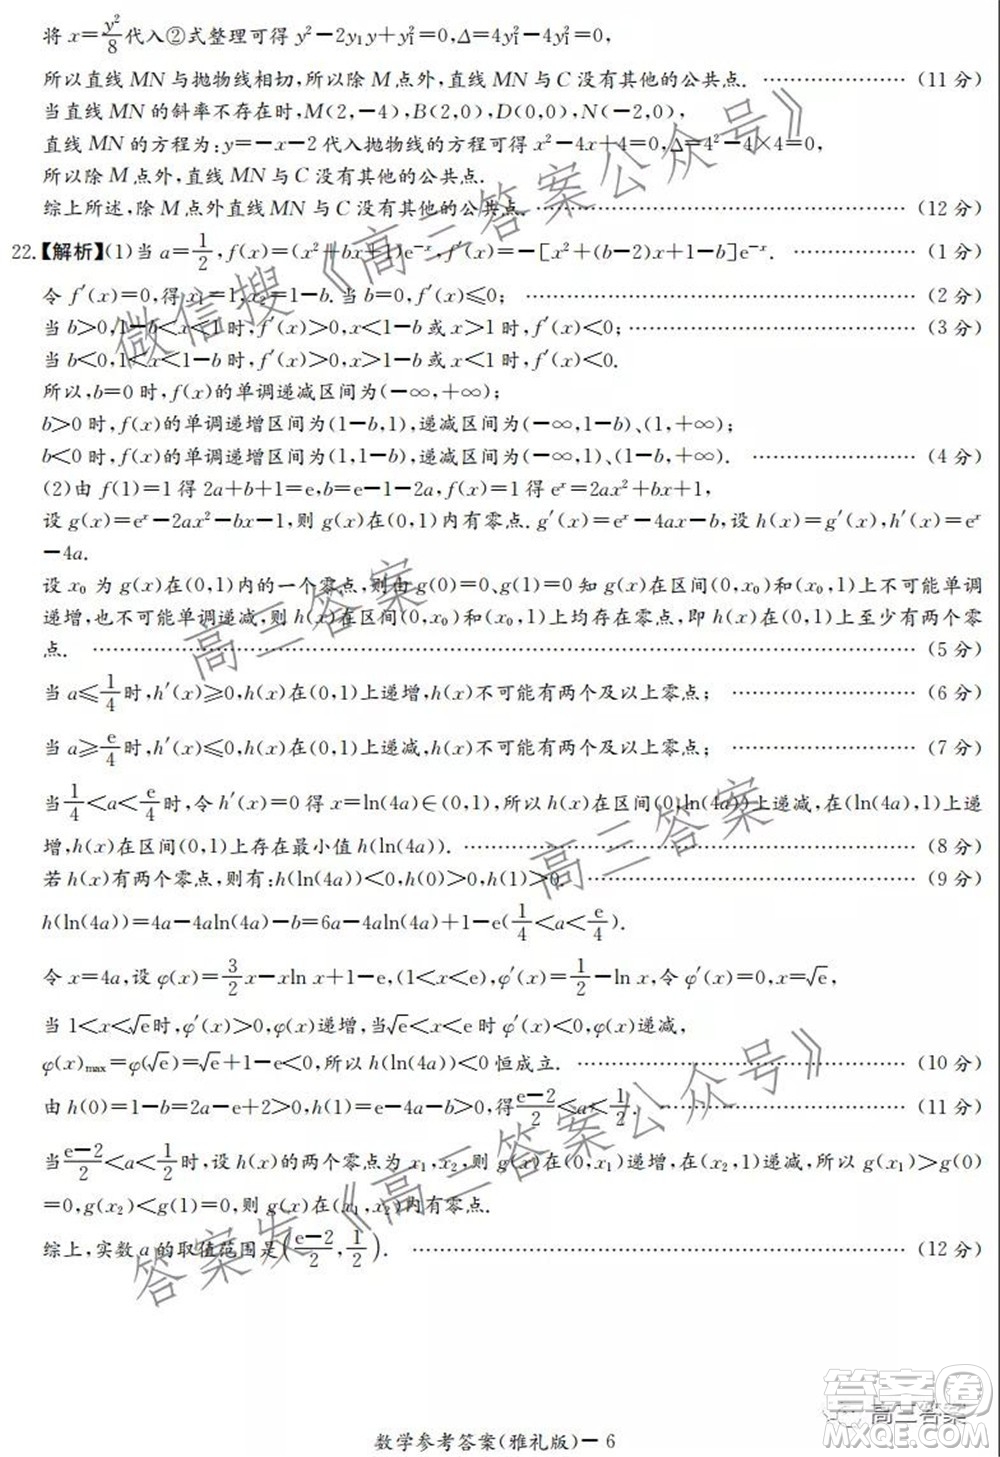 将 x=y²/8 代入②式整理可得 y²-2y₁y+y₁²=0,Δ=4y₁²-4y₁²=0,
所以直线 MN 与抛物线相切,所以除 M 点外,直线 MN 与 C 没有其他的公共点. ……………… (11 分)
当直线 MN 的斜率不存在时,M(2,-4),B(2,0),D(0,0),N(-2,0),
直线 MN 的方程为:y=-x-2 代入抛物线的方程可得 x²-4x+4=0,Δ=4²-4×4=0,
所以除 M 点外,直线 MN 与 C 没有其他的公共点.
综上所述,除 M 点外直线 MN 与 C 没有其他的公共点. ……………… (12 分)
22.【解析】(1)当 a=1/2,f(x)=(x²+bx+1)e⁻ˣ,f′(x)=-[x²+(b-2)x+1-b]e⁻ˣ. ……………… (1 分)
令 f′(x)=0,得 x₁=1,x₂=1-b.当 b=0,f′(x)≤0; ……………… (2 分)
当 b>0,1-b<x<1 时,f′(x)>0,x<1-b 或 x>1 时,f′(x)<0; ……………… (3 分)
当 b<0,1<x<1-b 时,f′(x)>0,x>1-b 或 x<1 时,f′(x)<0.
所以,b=0 时,f(x)的单调递减区间为(-∞,+∞);
b>0 时,f(x)的单调递增区间为(1-b,1),递减区间为(-∞,1-b)、(1,+∞);
b<0 时,f(x)的单调递增区间为(1,1-b),递减区间为(-∞,1)、(1-b,+∞). ……………… (4 分)
(2)由 f(1)=1 得 2a+b+1=e,b=e-1-2a,f(x)=1 得 eˣ=2ax²+bx+1,
设 g(x)=eˣ-2ax²-bx-1,则 g(x)在(0,1)内有零点.g′(x)=eˣ-4ax-b,设 h(x)=g′(x),h′(x)=eˣ
-4a.
设 x₀ 为 g(x)在(0,1)内的一个零点,则由 g(0)=0、g(1)=0 知 g(x)在区间(0,x₀)和(x₀,1)上不可能单调
递增,也不可能单调递减,则 h(x)在区间(0,x₀)和(x₀,1)上均存在零点,即 h(x)在(0,1)上至少有两个零
点. ……………… (5 分)
当 a≤1/4 时,h′(x)≥0,h(x)在(0,1)上递增,h(x)不可能有两个及以上零点; ……………… (6 分)
当 a≥e/4 时,h′(x)≤0,h(x)在(0,1)上递减,h(x)不可能有两个及以上零点; ……………… (7 分)
当 1/4<a<e/4 时,令 h′(x)=0 得 x=ln(4a)∈(0,1),所以 h(x)在区间(0,ln(4a))上递减,在(ln(4a),1)上递
增,h(x)在区间(0,1)上存在最小值 h(ln(4a)). ……………… (8 分)
若 h(x)有两个零点,则有:h(ln(4a))<0,h(0)>0,h(1)>0. ……………… (9 分)
h(ln(4a))=4a-4aln(4a)-b=6a-4aln(4a)+1-e(1/4<a<e/4).
令 x=4a,设 φ(x)=3/2x-xln x+1-e,(1<x<e),φ′(x)=1/2-ln x,令 φ′(x)=0,x=√e,
当 1<x<√e时,φ′(x)>0,φ(x)递增,当√e<x<e 时 φ′(x)<0,φ(x)递减,
φ(x)max=φ(√e)=√e+1-e<0,所以 h(ln(4a))<0 恒成立. ……………… (10 分)
由 h(0)=1-b=2a-e+2>0,h(1)=e-4a-b>0,得(e-2)/2<a<1/2. ……………… (11 分)
当(e-2)/2<a<1/2时,设 h(x)的两个零点为 x₁,x₂,则 g(x)在(0,x₁)递增,在(x₂,1)递减,所以 g(x₁)>g(0)
=0,g(x₂)<g(1)=0,则 g(x)在(x₁,x₂)内有零点.
综上,实数 a 的取值范围是((e-2)/2,1/2). ……………… (12 分)
数学参考答案(雅礼版)-6
微信搜《高三答案公众号》
高三答案
高三答案
答案发《高三答案公众号》
高三答案
答案圈
MXQE.COM